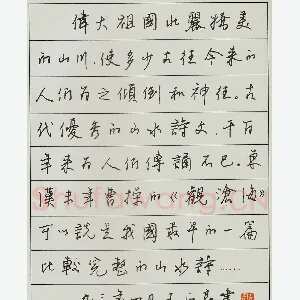 偉大祖國此麗嬌美
的山川，使多少古往今來的
人們為之傾倒和神往。古
代優秀的山水詩文，千百
年來為人們傳誦不已。東
漢末年曹操的《觀滄海》
可以說是我國最早的一篇
比較完整的山水詩……